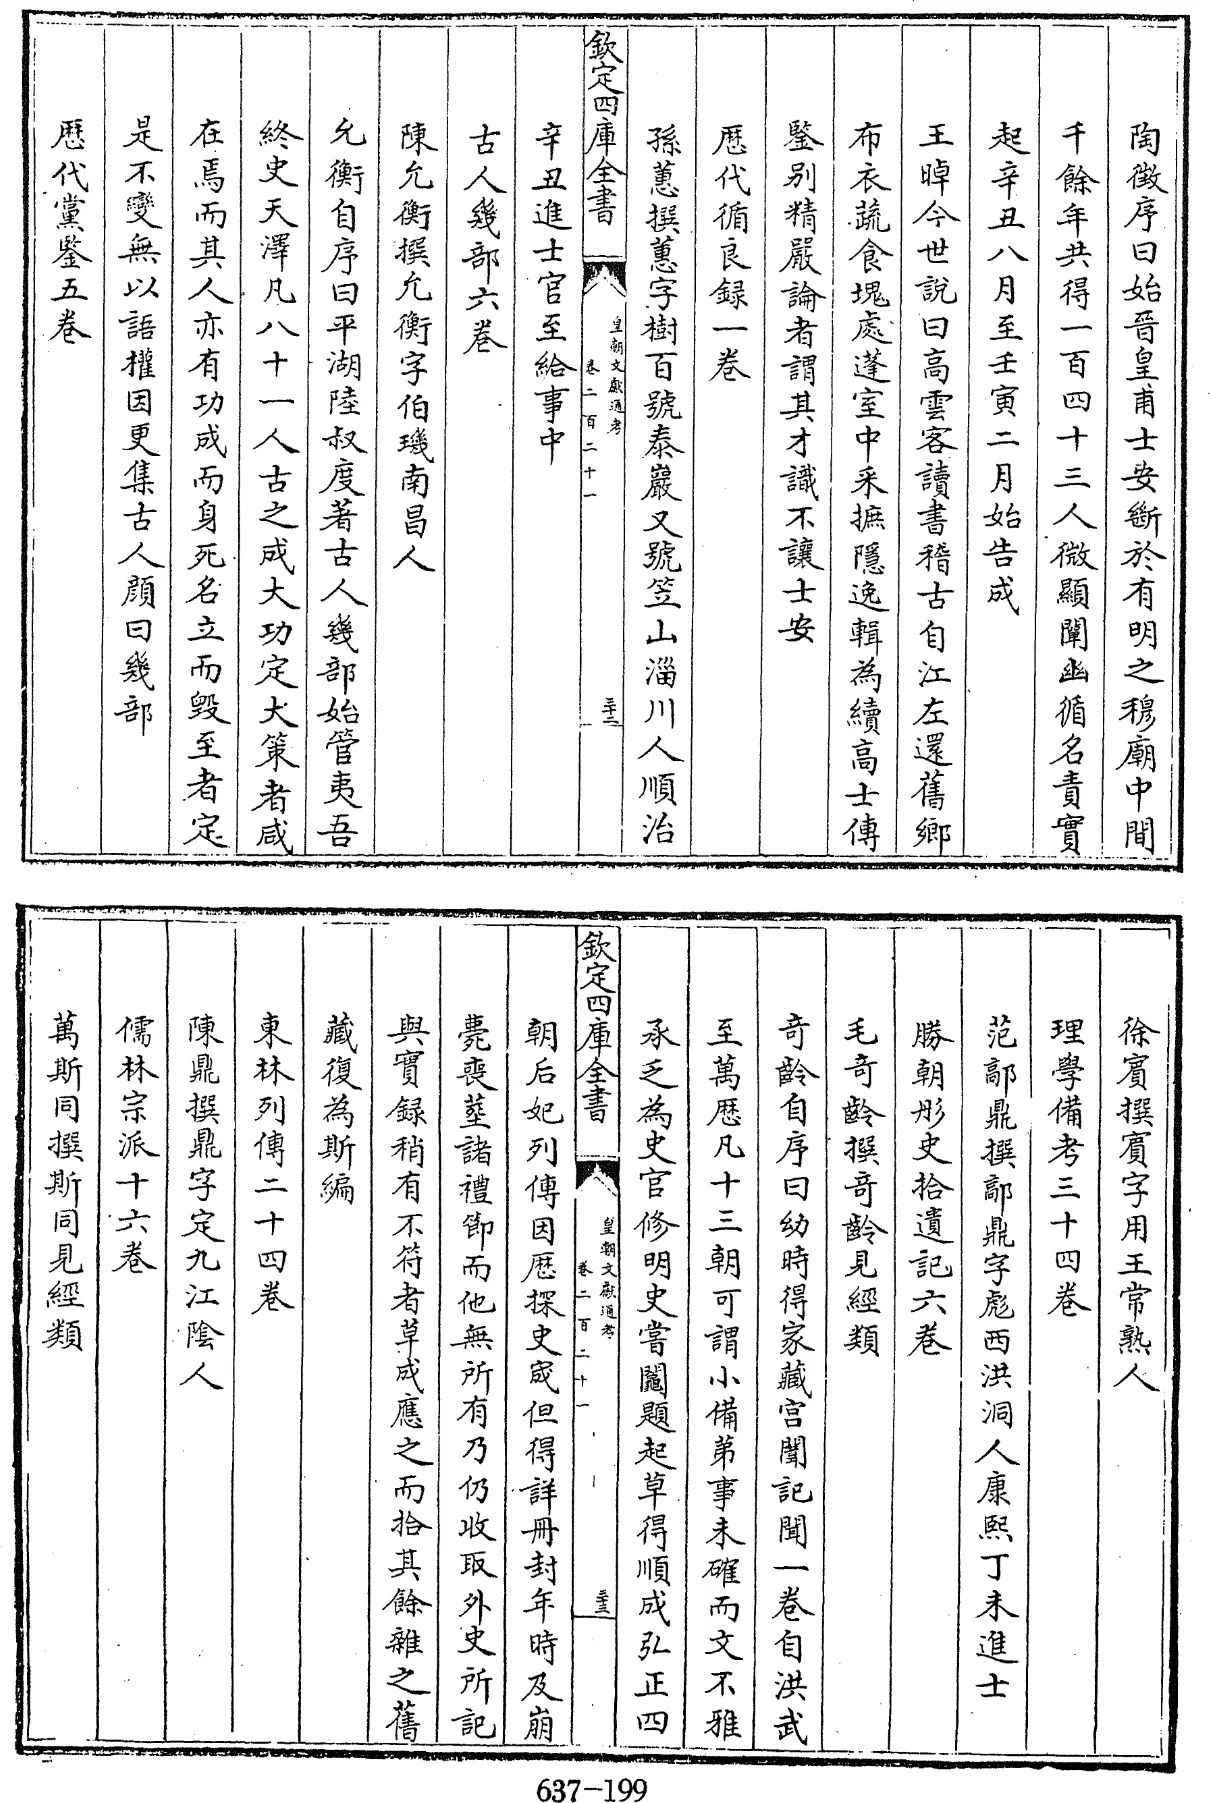 陶徵序曰始晉皇甫士安斷於有明之穆廟中間
千餘年共得一百四十三人微顯闡幽循名責實
起辛丑八月至壬寅二月始告成
王晫今世說曰高雲客讀書稽古自江左還舊鄉
布衣蔬食塊處蓬室中采摭隱逸輯為續高士傳
鑒别精嚴論者謂其才識不讓士安
歴代循良録一卷
孫蕙撰蕙字樹百號泰巖又號笠山淄川人順治
欽定四庫全書
皇朝文獻通考
卷二百二十一
三十二
辛丑進士官至給事中
古人幾部六卷
陳允衡撰允衡字伯璣南昌人
允衡自序曰平湖陸叔度著古人幾部始管夷吾
終史天澤凡八十一人古之成大功定大策者咸
在焉而其人亦有功成而身死名立而毁至者定
是不變無以語權因更集古人顔曰幾部
歴代黨鑒五卷
徐賓撰賓字用王常熟人
理學備考三十四卷
范鄗鼎撰鄗鼎字彪西洪洞人康熙丁未進士
勝朝彤史拾遺記六卷
毛奇齡撰奇齡見經類
奇齡自序曰幼時得家藏宫闈記聞一卷自洪武
至萬歴凡十三朝可謂小備第事未確而文不雅
承乏為史官修明史嘗鬮題起草得順成弘正四
欽定四庫全書
皇朝文獻通考
卷二百二十一
三十三
朝后妃列傳因歴探史宬但得詳冊封年時及崩
薨喪塟諸禮節而他無所有乃仍收取外史所記
與實録稍有不符者草成應之而拾其餘雜之舊
藏復為斯編
東林列傳二十四卷
陳鼎撰鼎字定九江陰人
儒林宗派十六卷
萬斯同撰斯同見經類
637-199